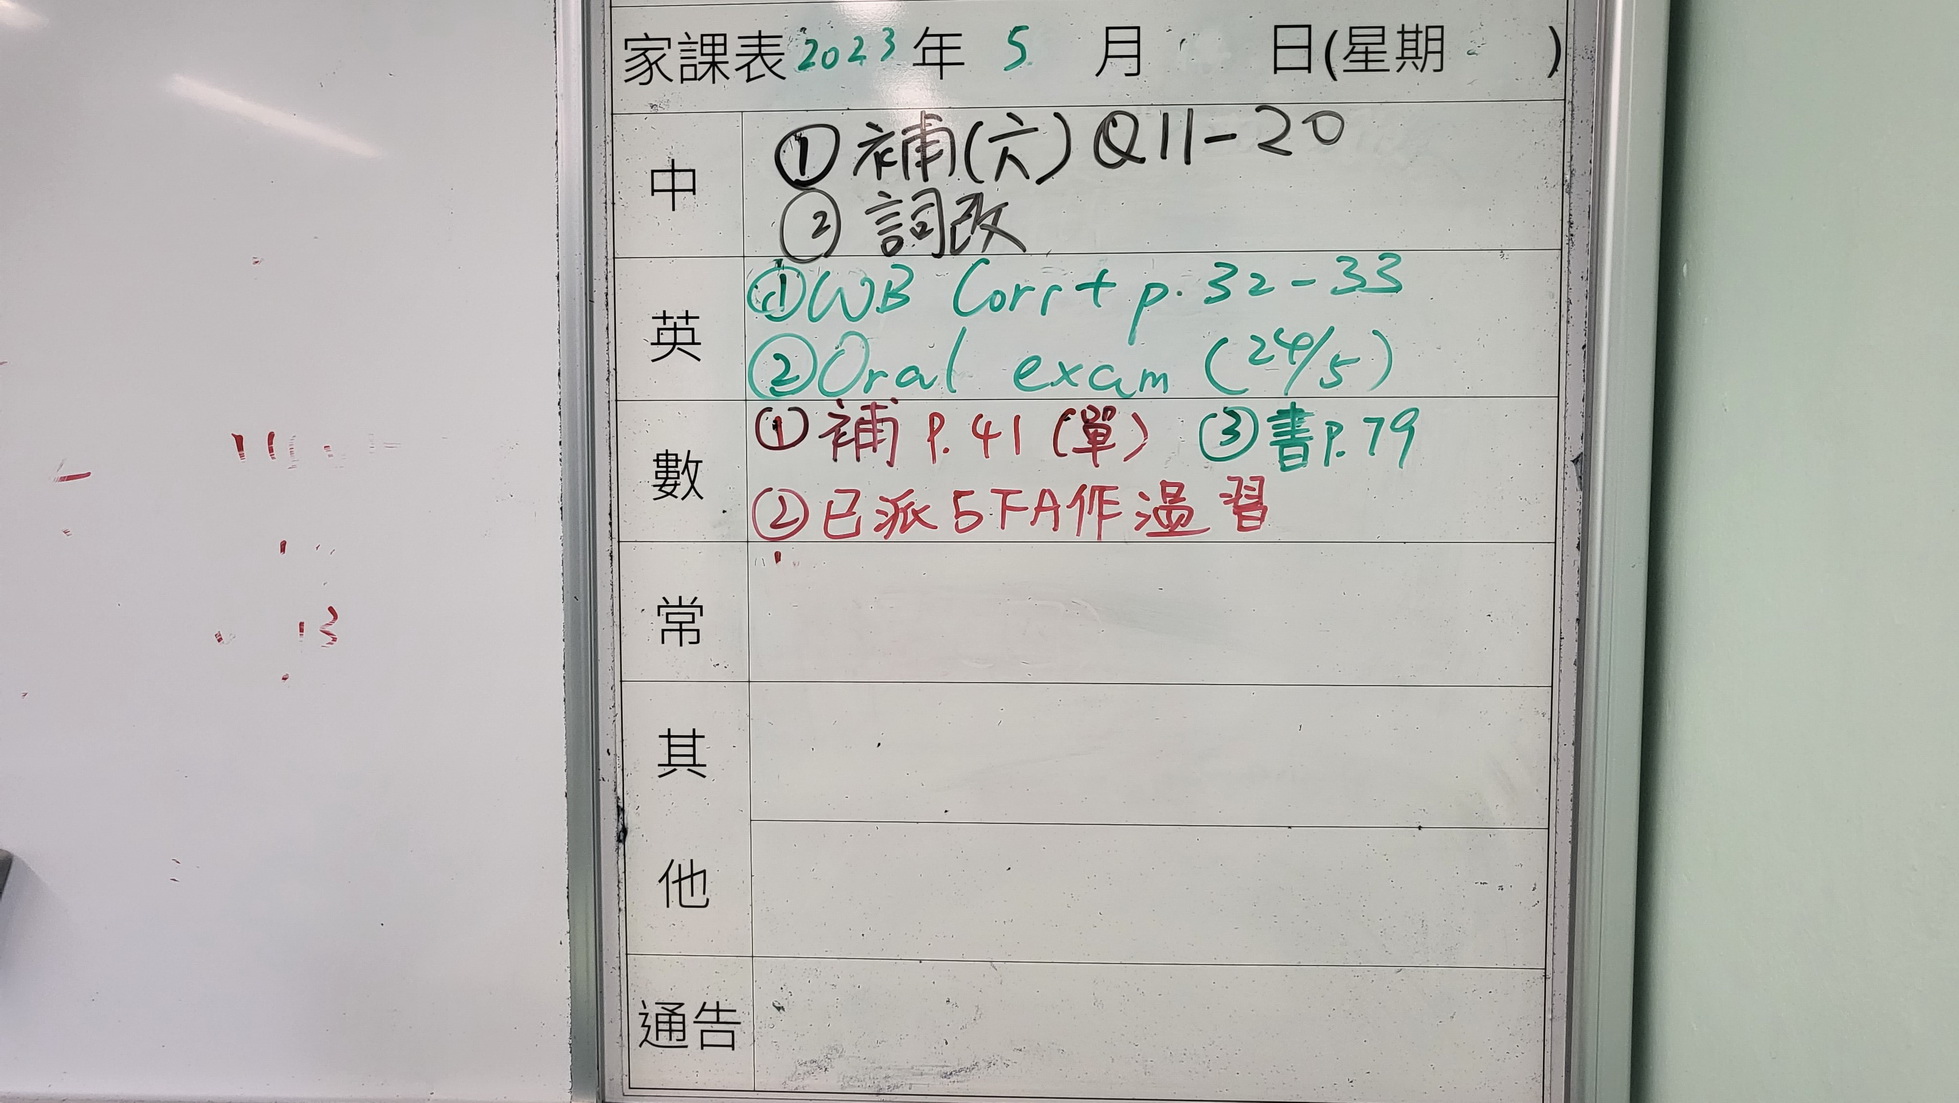 家課表 2023 年 5 月 日(星期 )
中
① 補(六) Q11-20
② 詞改
英
① WB Corr + p. 32-33
② Oral exam (24/5)
數
① 補 P. 41 (單) ③ 書p. 79
② 已派 5下A作溫習
常
其
他
通告